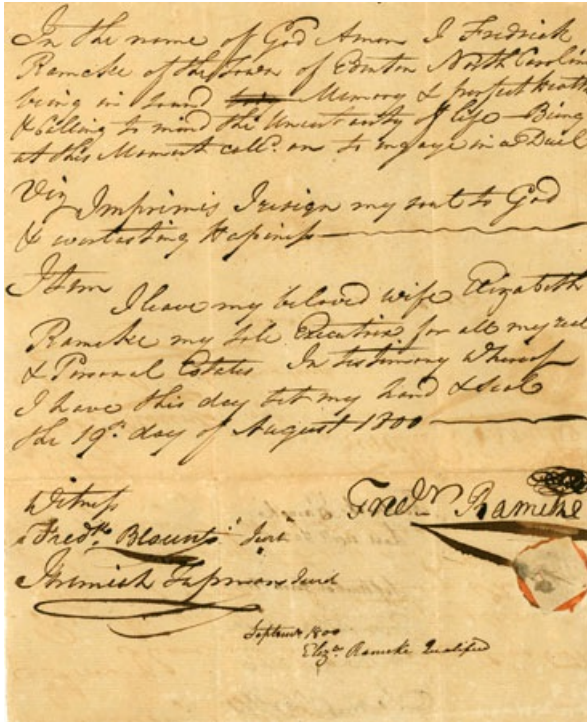 In the name of God Amen I Fredrick
Rameke of the Town of Edenton North Carolin
being in Sound Memory & perfect health
& Calling to mind the Uncertainty of life Being
at this Moment call.d on to engage in a Duel
Viz Imprimis I resign my soul to God
& everlasting Happiness
Item
I leave my beloved wife Elizabeth
Rameke my sole Executrix for all my real
& Personal Estates In testimony whereof
I have this day set my hand & seal
the 19th day of August 1800
Witness
Fredk. Blount Jurt
Fredk. Rameke
Jeremiah Jurid
Septemr. 1800
Elizth. Rameke Qualified